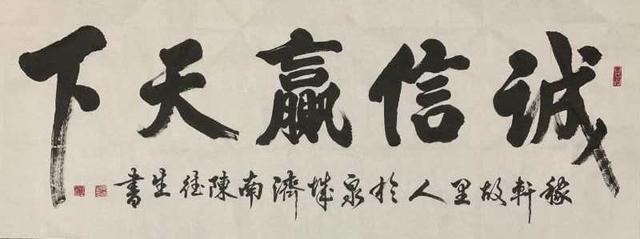 誠信贏天下
稼軒故里人於泉城濟南陳徃生書